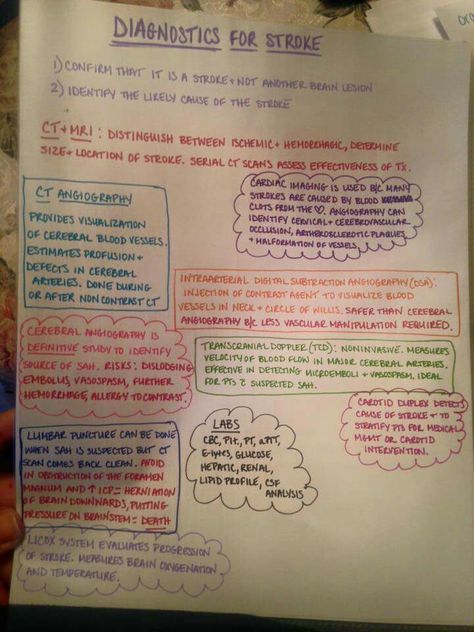 DIAGNOSTICS FOR STROKE
1) CONFIRM THAT IT IS A STROKE + NOT ANOTHER BRAIN LESION
2) IDENTIFY THE LIKELY CAUSE OF THE STROKE
CT + MRI : DISTINGUISH BETWEEN ISCHEMIC + HEMORRHAGIC, DETERMINE
SIZE + LOCATION OF STROKE. SERIAL CT SCANS ASSESS EFFECTIVENESS OF Tx.
CT ANGIOGRAPHY
PROVIDES VISUALIZATION
OF CEREBRAL BLOOD VESSELS.
ESTIMATES PROFUSION +
DEFECTS IN CEREBRAL
ARTERIES. DONE DURING
OR AFTER NON CONTRAST CT
CARDIAC IMAGING IS USED B/C MANY
STROKES ARE CAUSED BY BLOOD
CLOTS FROM THE ♡. ANGIOGRAPHY CAN
IDENTIFY CERVICAL + CEREBROVASCULAR
OCCLUSION, ARTHEROSCLEROTIC PLAQUES
+ MALFORMATION OF VESSELS.
INTRAARTERIAL DIGITAL SUBTRACTION ANGIOGRAPHY (DSA):
INJECTION OF CONTRAST AGENT TO VISUALIZE BLOOD
VESSELS IN NECK + CIRCLE OF WILLIS. SAFER THAN CEREBRAL
ANGIOGRAPHY B/C LESS VASCULAR MANIPULATION REQUIRED.
CEREBRAL ANGIOGRAPHY IS
DEFINITIVE STUDY TO IDENTIFY
SOURCE OF SAH. RISKS: DISLODGING
EMBOLUS, VASOSPASM, FURTHER
HEMORRHAGE, ALLERGY TO CONTRAST.
TRANSCRANIAL DOPPLER (TCD): NONINVASIVE. MEASURES
VELOCITY OF BLOOD FLOW IN MAJOR CEREBRAL ARTERIES.
EFFECTIVE IN DETECTING MICROEMBOLI + VASOSPASM. IDEAL
FOR PTS c̄ SUSPECTED SAH.
CAROTID DUPLEX DETECTS
CAUSE OF STROKE + TO
STRATIFY PTS FOR MEDICAL
MGMT OR CAROTID
INTERVENTION.
LUMBAR PUNCTURE CAN BE DONE
WHEN SAH IS SUSPECTED BUT CT
SCAN COMES BACK CLEAN. AVOID
IN OBSTRUCTION OF THE FORAMEN
MAGNUM AND ↑ ICP = HERNIATION
OF BRAIN DOWNWARDS, PUTTING
PRESSURE ON BRAINSTEM = DEATH
LABS
CBC, Plt, PT, aPTT,
E-lytes, GLUCOSE,
HEPATIC, RENAL,
LIPID PROFILE, CSF
ANALYSIS
LICOX SYSTEM EVALUATES PROGRESSION
OF STROKE. MEASURES BRAIN OXYGENATION
AND TEMPERATURE.